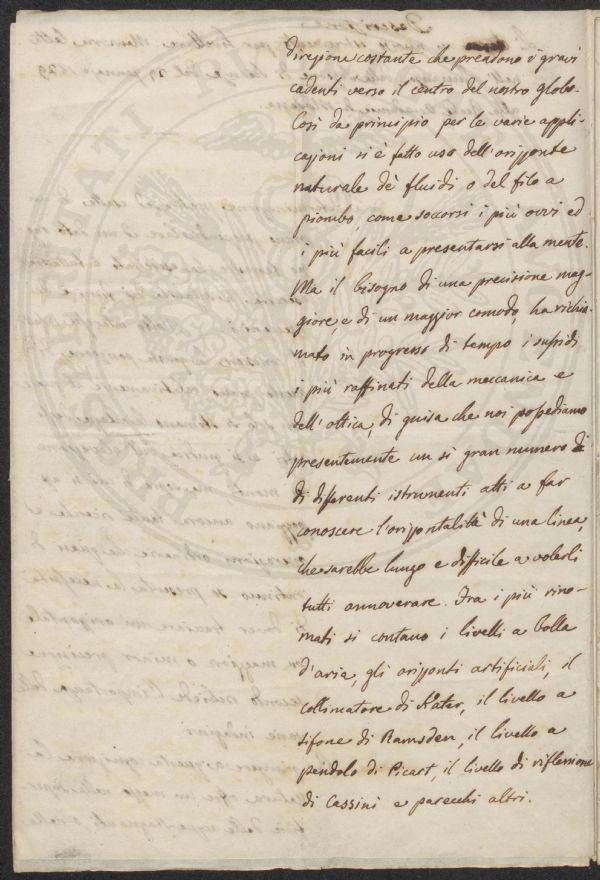 direzione costante che prendono i gravi
cadenti verso il centro del nostro globo.
Così da principio per le varie appli-
cazioni si è fatto uso dell'orizzonte
naturale dè fluidi o del filo a
piombo, come soccorsi i più ovvi ed
i più facili a presentarsi alla mente.
Ma il bisogno di una precisione mag-
giore e di un maggior comodo, ha richia-
mato in progresso di tempo i sussidi
i più raffinati della meccanica e
dell'ottica, di guisa che noi possediamo
presentemente un si gran numero di
di differenti istrumenti atti a far
conoscere l'orizontalità di una linea,
che sarebbe lungo e difficile a volerli
tutti annoverare. Fra i più rino-
mati si contano i livelli a bolla
d'aria, gli orizzonti artificiali, il
collimatore di Kater, il livello a
sifone di Ramsden, il livello a
pendolo di Picart, il livello di riflessione
di Cassini e parecchi altri.